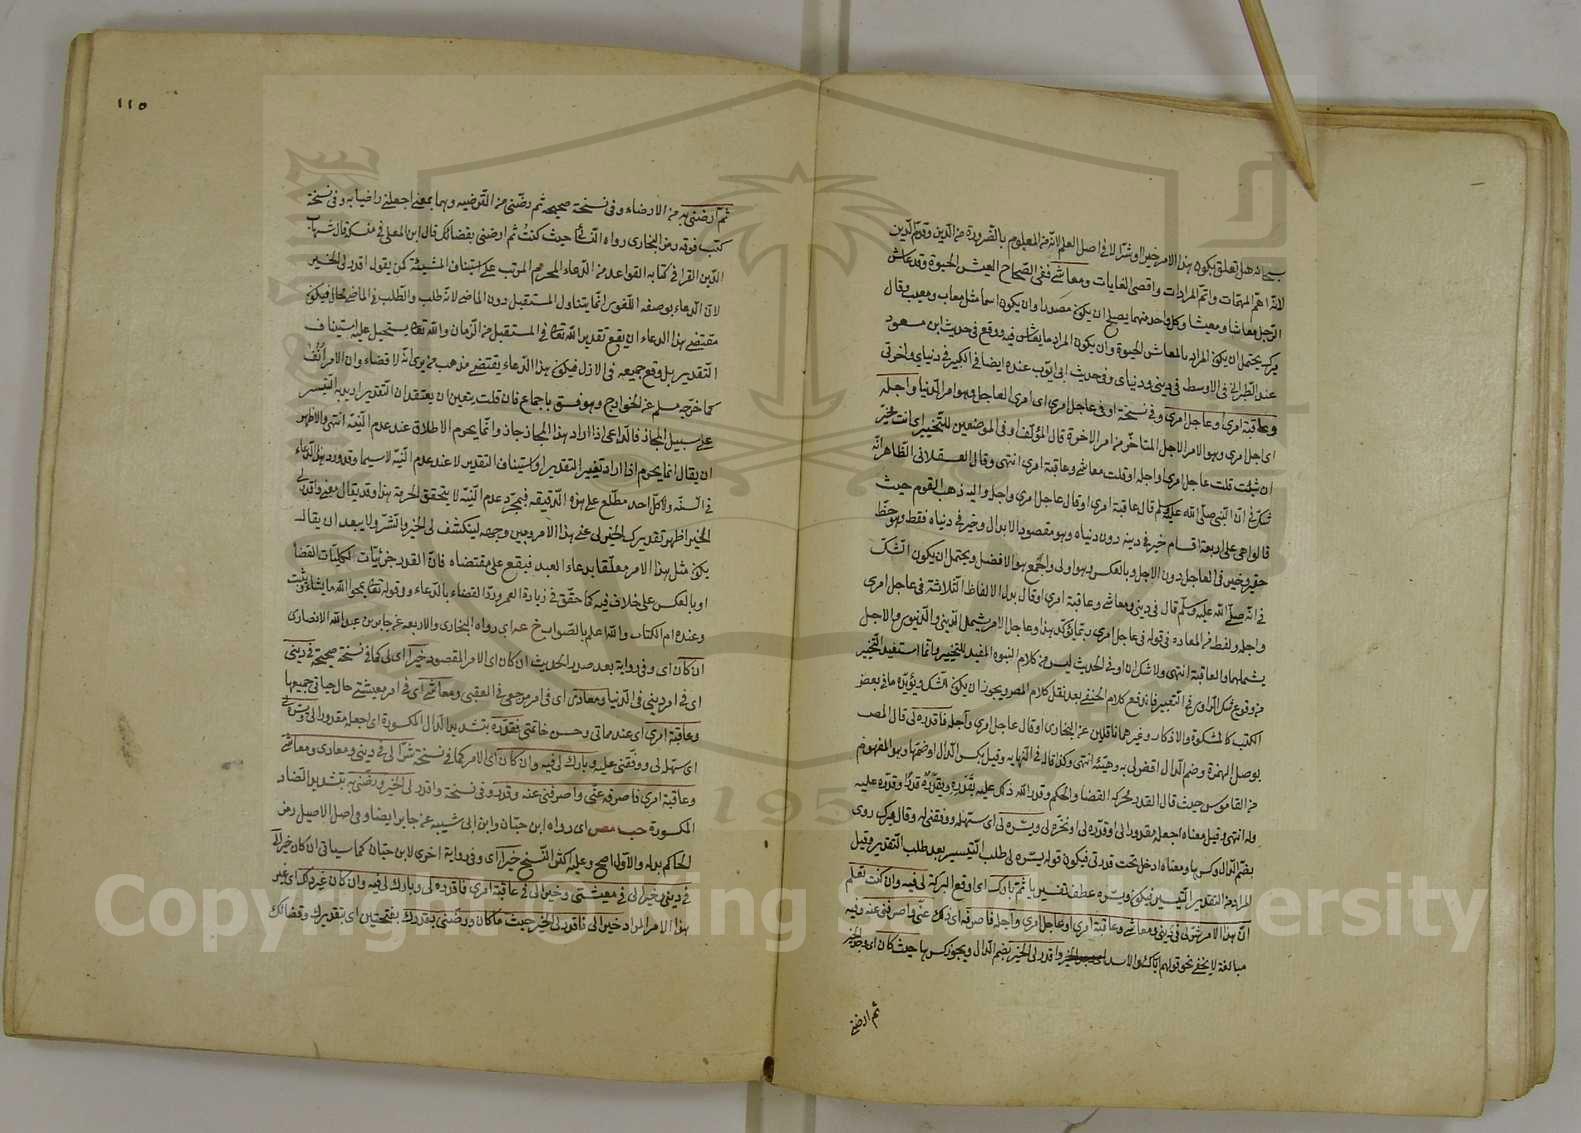 سبحانه هل تعلق بكون هذا الامر خيرا او شرا لا في اصل العلم لانه من المعلوم بالضرورة من الدين وقدم الدين
لانه اهم المهمات واتم المرادات واقصى الغايات ومعاشي ففي الصحاح العيش الحيوة وقد عاش
الرجل معاشا ومعيشا وكل واحد منهما يصلح ان يكون مصدرا وان يكون اسما مثل معاب ومعيب وقال
ميرك يحتمل ان يكون المراد بالمعاش الحيوة وان يكون المراد ما يعاش فيه ووقع في حديث ابن مسعود
عند الطبراني في الاوسط في ديني ودنياي وفي حديث ابي ايوب عنده ايضا في الكبير في دنياي واخرتي
وعاقبة امري او عاجل امري وفي نسخة او في عاجل امري اي امري العاجل وهو امر الدنيا واجله
اي اجل امري وهو الامر الاجل المتاخر من امر الاخرة قال المؤلف او في الموضعين للتخيير اي انت مخير
ان شئت قلت عاجل امري واجله او قلت معاشي وعاقبة امري انتهى وقال العسقلاني الظاهر انه
شك في ان النبي صلى الله عليه وسلم قال عاقبة امري او قال عاجل امري واجله واليه ذهب القوم حيث
قالوا هي على اربعة اقسام خير في دينه دون دنياه وهو مقصود الابدال وخير في دنياه فقط وهو حظ
حقير وخير في العاجل دون الاجل وبالعكس وهو اولى والجمع هو الافضل ويحتمل ان يكون الشك
في انه صلى الله عليه وسلم قال في ديني ومعاشي وعاقبة امري او قال بدل الالفاظ الثلاثة في عاجل امري
واجله ولفظ في المعادة في قوله في عاجل امري ربما يؤكد هذا وعاجل الامر يشمل الديني والدنيوي والاجل
يشملهما والعاقبة انتهى ولا شك ان او في الحديث ليس من كلام النبوة المفيد للتخيير وانما استفيد التخيير
من وقوع شك الراوي في التعبير فاندفع كلام الحنفي بعد نقل كلام المصر ويجوز ان يكون الشك ويؤيده ما في بعض
الكتب كالمشكوة والاذكار وغيرهما ناقلين عن البخاري او قال عاجل امري وآجله فاقدره لي قال المصـ
بوصل الهمزة وضم الدال اقض لي به وهيئه انتهى وكذا قاله في النهايه وقيل بكسر الدال او ضمها وهو المفهوم
من القاموس حيث قال القدر محركه القضا والحكم وقدر الله ذلك عليه يقدره ويقدره قدرا وقدره عليه
وله انتهى وقيل معناه اجعله مقدورا لي او قدره لي او نخره لي ويسره لي اي سهله ووفقني له وقال ميرك روي
بضم الدال وكسرها ومعناه ادخله تحت قدرتي فيكون قوله يسره لي طلب التيسير بعد طلب التقدير وقيل
المراد من التقدير التيسير فيكون ويسره عطف تفسير ثم بارك اي اوقع البركة لي فيه وان كنت تعلم
ان هذا الامر شر لي في ديني ومعاشي وعاقبة امري او عاجل امري وآجله فاصرفه اي ذلك عني واصرفني عنه وفيه
مبالغة لا يخفى نحو قولهم اياك والاسد واقدر لي الخير بضم الدال ويجوز كسرها حيث كان اي وجد الخير
ثم ارضني
١١٥
ثم ارضني به من الارضاء وفي نسخة صحيحة ثم رضني من الترضيه وهما بمعنى اجعلني راضيا به وفي نسخة
كتب فوقه رمز البخاري رواه النسائي حيث كنت ثم ارضني بقضائك قال ابن المعلى في منسكه قال شهاب
الدين القرافي في كتابه القواعد من الدعاء المحرم المرتب على استيناف المشيئة كمن يقول اقدر لي الخير
لان الدعاء بوصفه اللغوي انما يتناول المستقبل دون الماضي لانه طلب والطلب في الماضي محال فيكون
مقتضى هذا الدعاء ان يقع تقدير الله تعالى في المستقبل من الزمان والله تعالى يستحيل عليه استيناف
التقدير بل وقع جميعه في الازل فيكون هذا الدعاء يقتضي مذهب من يرى انه لا قضاء وان الامر انف
كما خرجه مسلم عن الخوارج وهو فسق باجماع فان قلت يتعين ان يعتقد ان التقدير اريد به التيسير
على سبيل المجاز فالداعي اذا اراد هذا المجاز جاز وانما يحرم الاطلاق عند عدم النية انتهى والاظهر
ان يقال انما يحرم اذا اراد تغيير التقدير او استيناف التقدير لا عند عدم النية لا سيما وقد ورد هذا الدعاء
في السنه ولا كل احد مطلع على هذه الدقيقه فبمجرد عدم النية لا يتحقق الحرمة هذا وقد يقال معنى واقدر لي
الخير اظهر تقديرك الخير لي في هذا الامر وبين وجهه لينكشف لي الخير والشر ولا يبعد ان يقال
يكون مثل هذا الامر معلقا بدعاء العبد فيقع على مقتضاه فان القدر جزئيات لكليات القضا
او بالعكس على خلاف فيه كما حقق في زيادة العمر ورد القضاء بالدعاء وفي قوله تعالى يمحو الله ما يشاء ويثبت
وعنده ام الكتاب والله اعلم بالصواب خ عه اي رواه البخاري والاربعه عن جابر بن عبد الله الانصاري
ان كان اي وفي رواية بعد صدر الحديث ان كان اي الامر المقصود خيرا اي لي كما في نسخة صحيحة في ديني
اي في امر ديني في الدنيا ومعادي اي في امر مرجعي في العقبى ومعاشي اي في امر معيشتي حال حياتي جميعها
وعاقبة امري اي عند مماتي وحسن خاتمتي فقدره بتشديد الدال المكسورة اي اجعله مقدورا لي ويسره لي
اي سهل لي ووفقني عليه وبارك لي فيه وان كان اي الامر كما في نسخة شرا لي في ديني ومعادي ومعاشي
وعاقبة امري فاصرفه عني واصرفني عنه وقدر وفي نسخة واقدر لي الخير ورضني به بتشديد الضاد
المكسورة حب مص اي رواه ابن حبان وابن ابي شيبه عن جابر ايضا وفي اصل الاصيل رمز
الحاكم بدله والاول اصح وعليه اكثر النسخ خيرا اي وفي رواية اخرى لابن حبان كما سياتي ان كان خيرا لي
في ديني وخيرا لي في معيشتي وخيرا لي في عاقبة امري فاقدره لي وبارك لي فيه وان كان غير ذلك اي غير
هذا الامر المراد خيرا لي فاقدر لي الخير حيث ما كان ورضني بقدرك بفتحتين اي بتقديرك وقضائك
Copyright © King Saud University